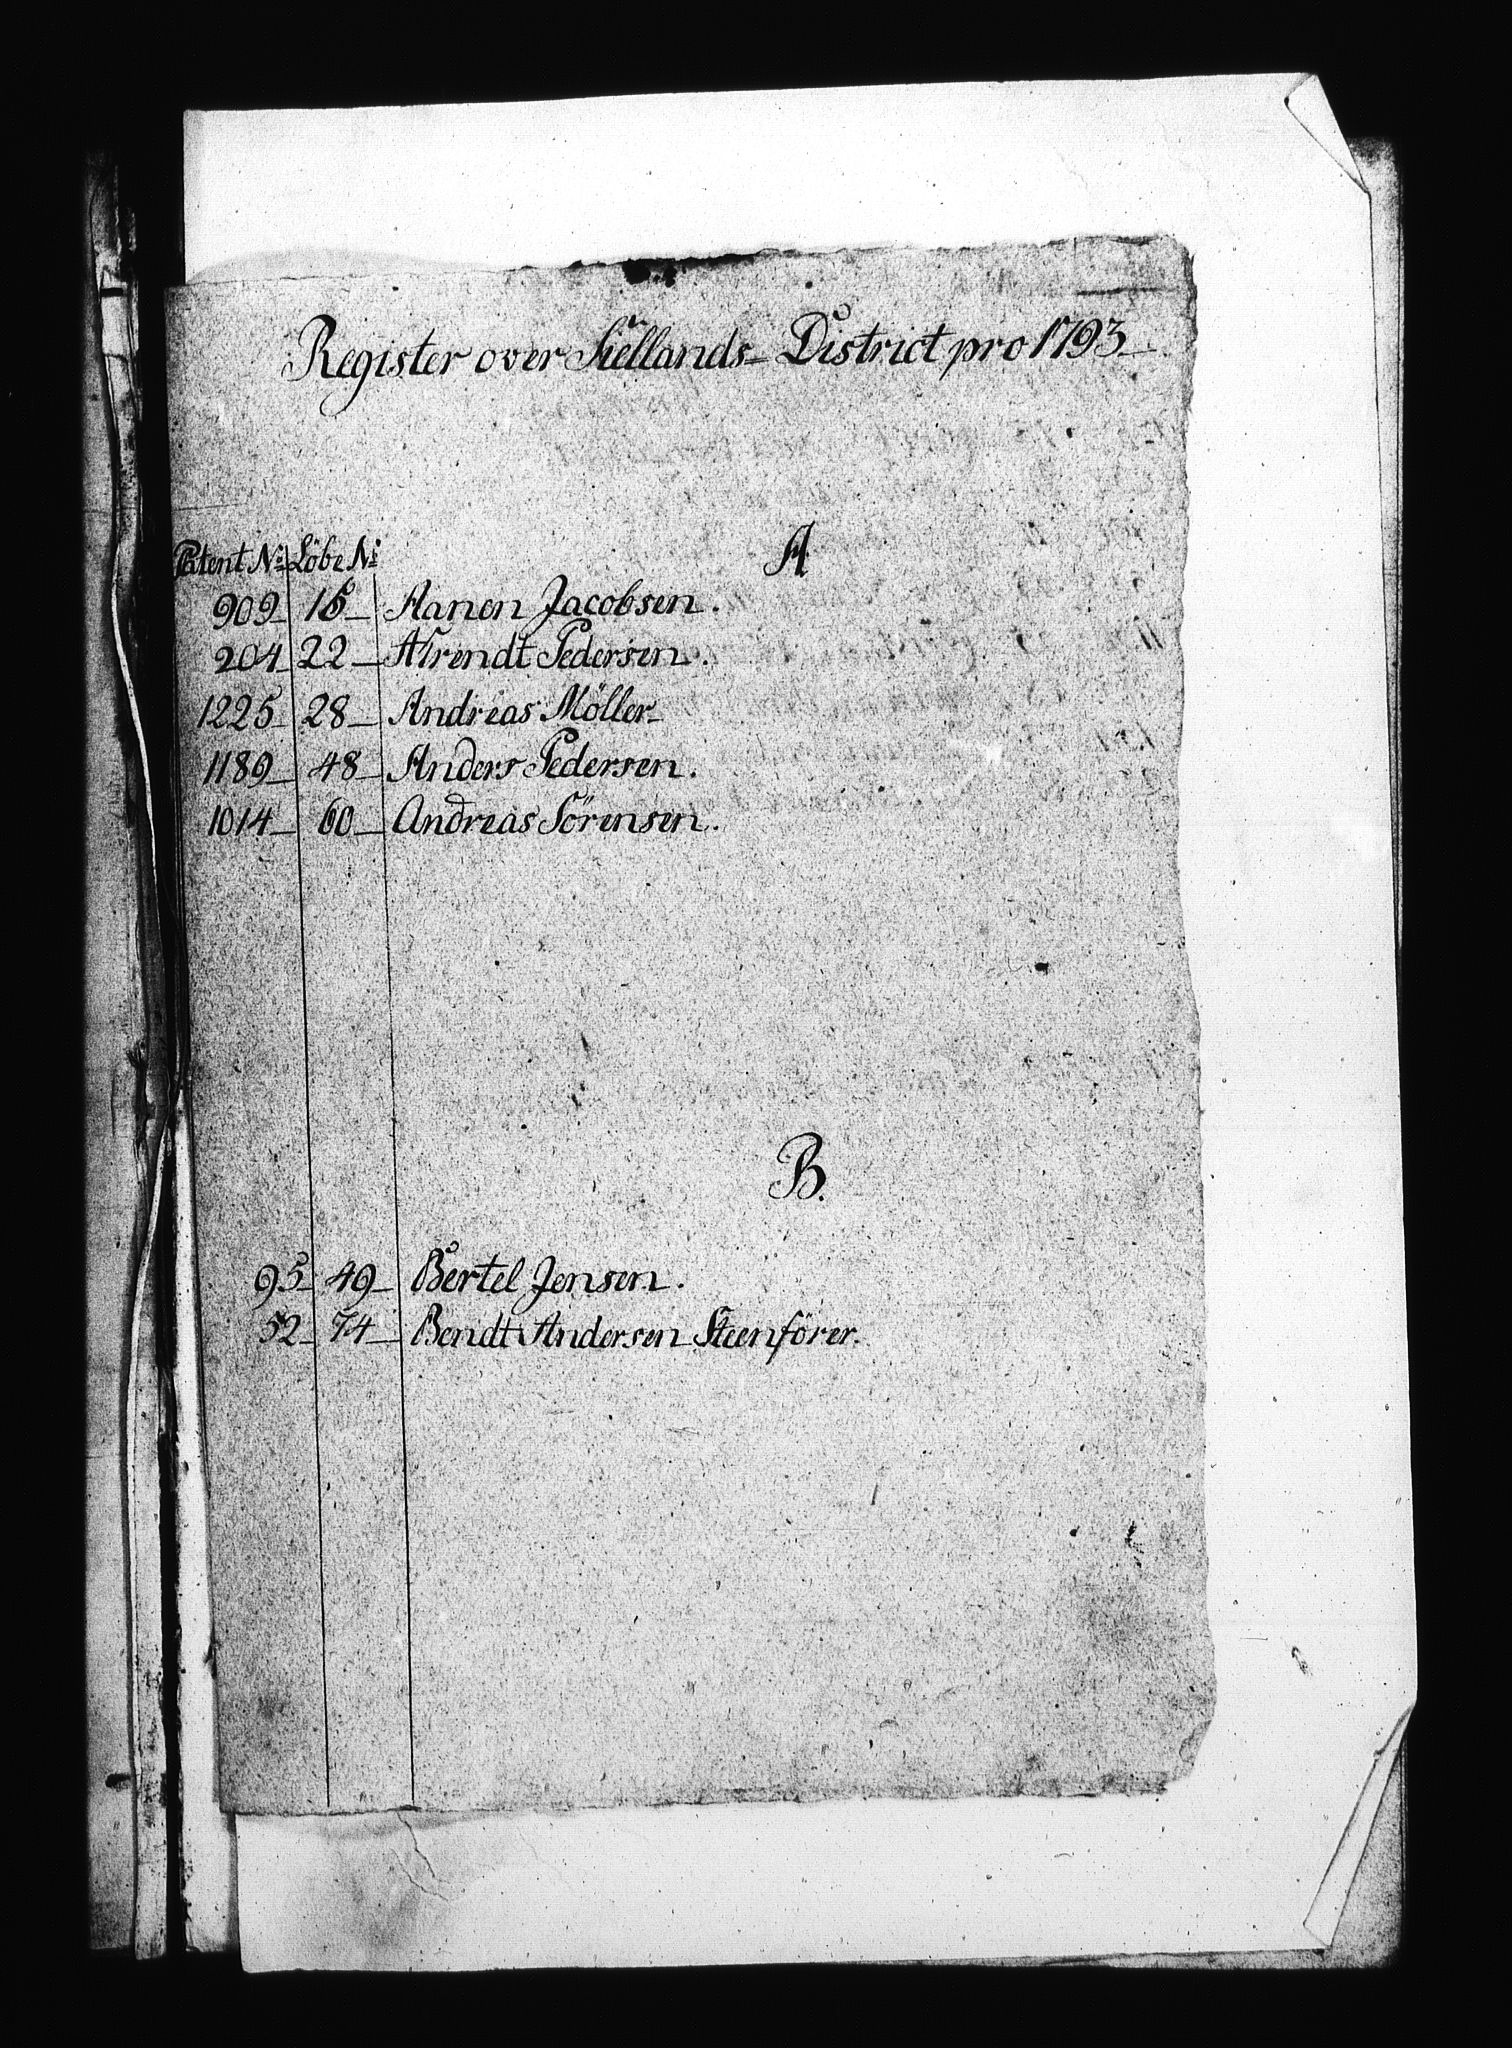 Register over Siellands District pro 1793
A
Patent No Löbe No
909 15 Aanen Jacobsen.
204 22 Ahrendt Pedersen.
1225 28 Andreas Möller
1189 48 Anders Pedersen.
1014 60 Andreas Sörensen.
B.
95 49 Bertel Jensen.
52 74 Bendt Andersen Steenförer.